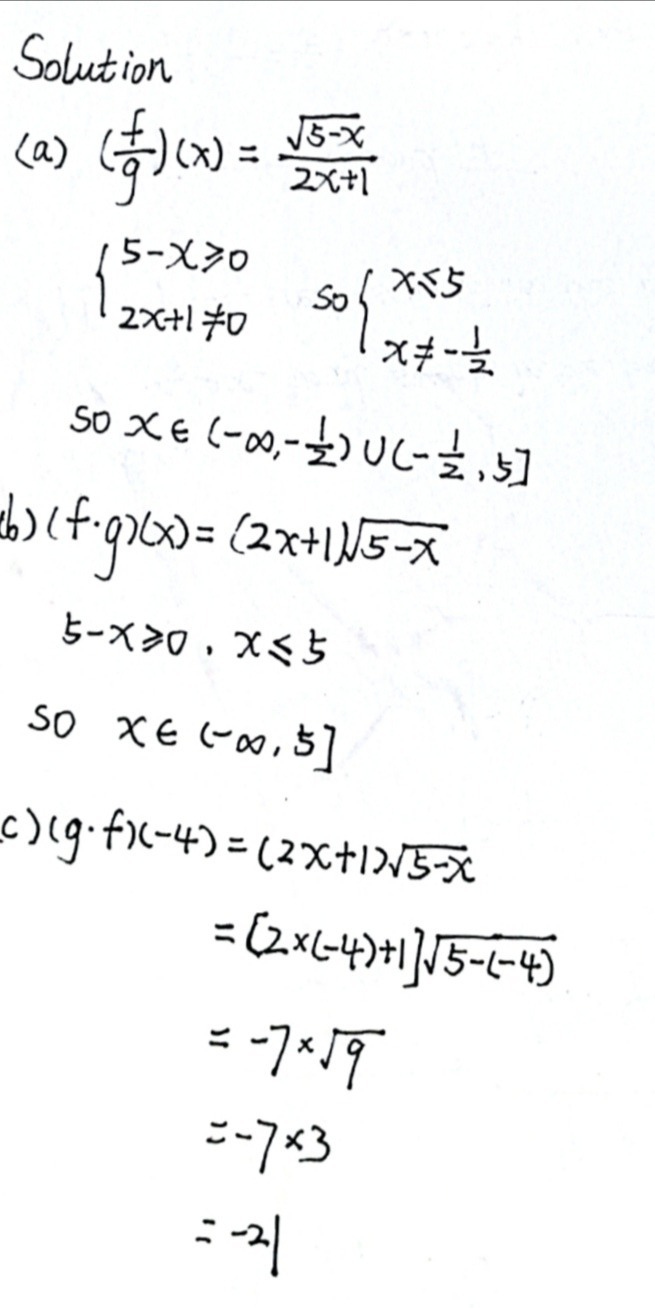 Solution
(a) (f/g)(x) = √(5-x)/(2x+1)
{ 5-x≥0
2x+1≠0 so { x≤5
x≠-1/2
so x∈(-∞,-1/2)∪(-1/2,5]
(b) (f·g)(x) = (2x+1)√(5-x)
5-x≥0, x≤5
so x∈(-∞,5]
(c) (g·f)(-4) = (2x+1)√(5-x)
= [2×(-4)+1]√(5-(-4))
= -7×√9
= -7×3
= -21